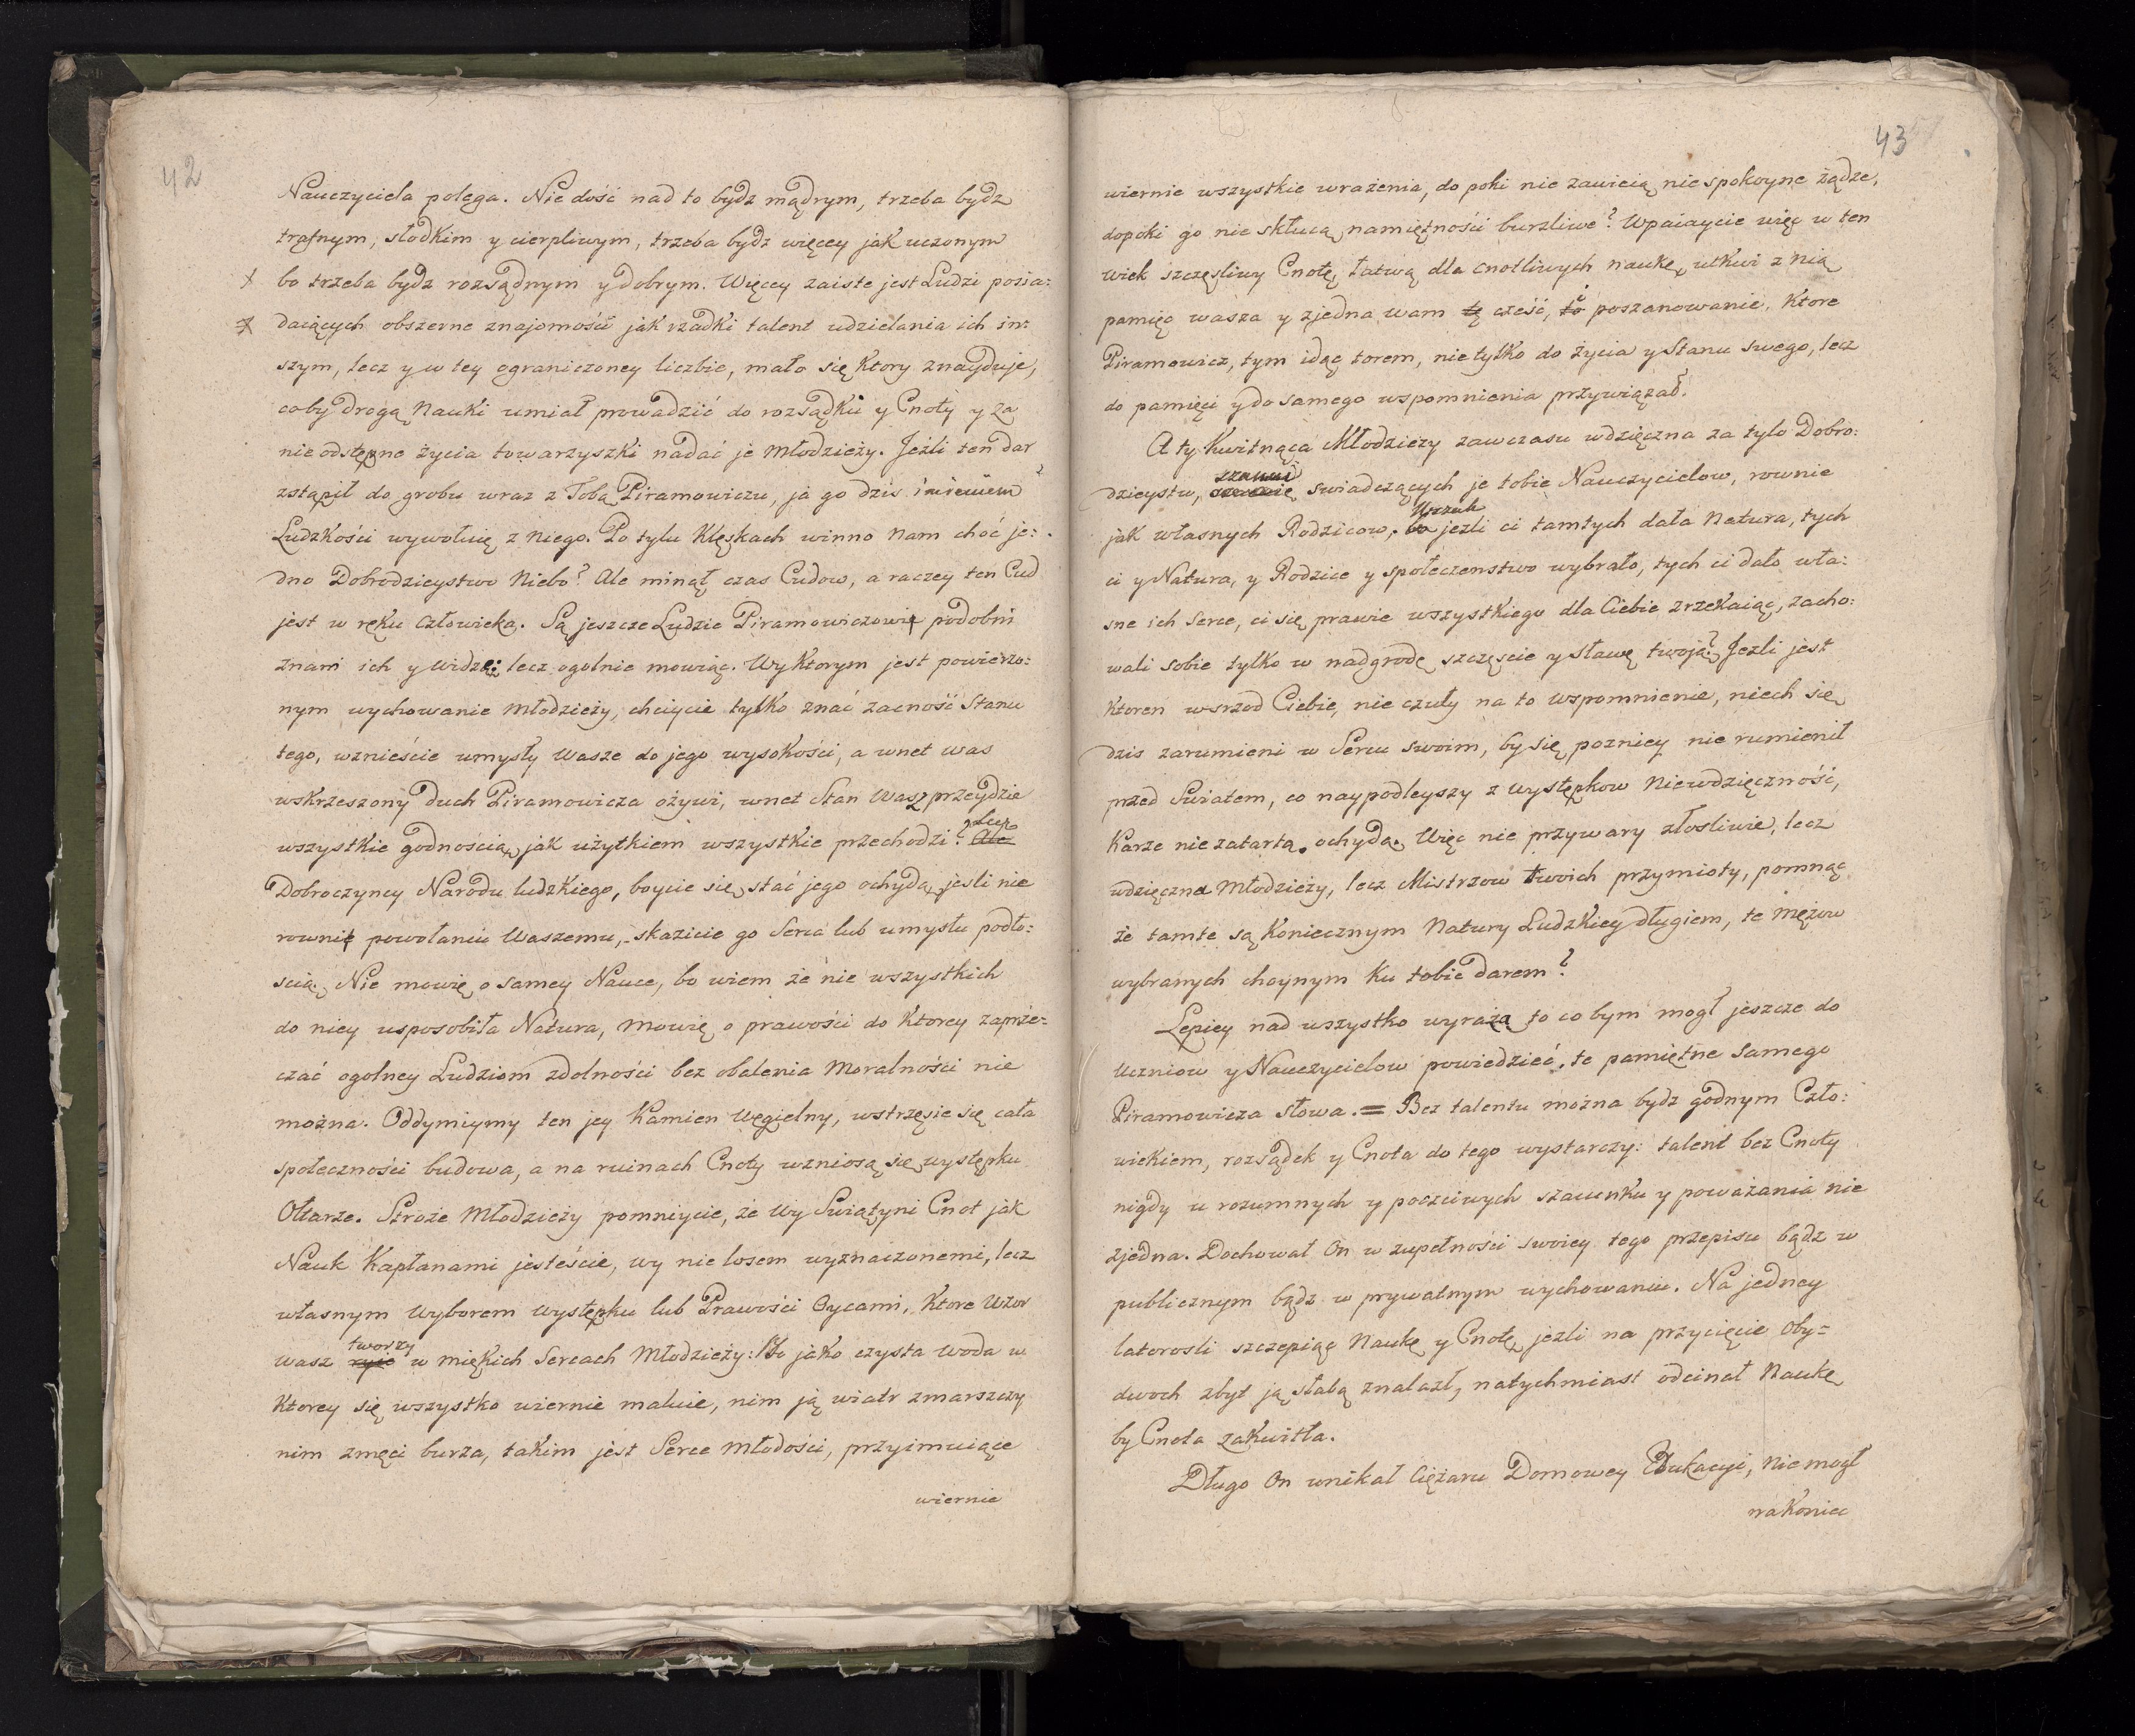 42
Nauczyciela polega. Nie dość nad to bydz mądrym, trzeba bydz
trafnym, słodkim y cierpliwym, trzeba bydz więcey jak uczonym
bo trzeba bydz rozsądnym y dobrym. Więcey zaiste jest Ludzi posia:
daiących obszerne znajomości jak rzadki talent udzielania ich in:
szym, lecz y w tey ograniczoney liczbie, mało się ktory znayduje,
coby drogą Nauki umiał prowadzić do rozsądku y Cnoty y za
nie odstępne życia towarzyszki nadać je Młodzieży. Jeżli ten dar
zstąpił do grobu wraz z Tobą Piramowiczu, ja go dzis imieniem
Ludzkości wywołuię z niego. Po tylu Klęskach winno nam choć je:
dno Dobrodzieystwo Niebo? Ale minął czas Cudow, a raczey ten Cud
jest w ręku człowieka. Są jeszcze Ludzie Piramowiczowi podobni
znam ich y widzę; lecz ogolnie mowiąc. Wy Ktorym jest powierzo:
nym wychowanie Młodzieży, chcieycie tylko znać zacność Stanu
tego, wznieście umysły Wasze do jego wysokości, a wnet was
wskrzeszony duch Piramowicza ożywi, wnet Stan Wasz przeydzie
wszystkie godnością, jak użytkiem wszystkie przechodzi? Ale Lecz
Dobroczyncy Narodu ludzkiego, boycie się stać jego ochydą, jesli nie
rowni powołaniu Waszemu, skazicie go Serca lub umysłu podło:
scią. Nie mowię o samey Nauce, bo wiem że nie wszystkich
do niey usposobiła Natura, mowię o prawości do Ktorey zaprze-
czać ogolney Ludziom zdolności bez obalenia Moralności nie
można. Oddymiymy ten jey Kamien Węgielny, wstrzęsie się cała
społeczności budowa, a na ruinach Cnoty wzniosą się występku
Ołtarze. Stroże Młodzieży pomniycie, że Wy Swiątyni Cnot jak
Nauk Kapłanami jesteście, wy nie losem wyznaczonemi, lecz
własnym Wyborem Występku lub Prawości Oycami, Ktore Wzor
tworzy
wasz ryie w miękich Sercach Młodzieży: Bo jako czysta woda w
Ktorey się wszystko wiernie maluie, nim ją wiatr zmarszczy
nim zmęci burza, takim jest Serce Młodości, przyimuiące
wiernie
43
wiernie wszystkie wrażenia, do poki nie zawieią niespokoyne żądze,
dopoki go nie skłucą namiętności burzliwe? Wpaiaycie więc w ten
wiek szczęsliwy Cnotę, łatwą dla cnotliwych naukę, utkwi z nią
pamięć wasza y zjedna wam tę cześć, to poszanowanie, Ktore
Piramowicz, tym idąc torem, nie tylko do życia y Stanu swego, lecz
do pamięci y do samego wspomnienia przywiązał.
A ty Kwitnąca Młodzieży zawczasu wdzięczna za tyle Dobro:
dzieystw, swiadczących je tobie Nauczycielow, rownie
Wszak
jak własnych Rodzicow, bo jezli ci tamtych dała Natura, tych
ci y Natura, y Rodzice y społeczenstwo wybrało, tych ci dało wła:
sne ich Serce, ci się prawie wszystkiego dla Ciebie zrzekaiąc, zacho:
wali sobie tylko w nadgrodę szczęscie y sławę twoją? Jezli jest
Ktoren wsrzod Ciebie, nie czuły na to wspomnienie, niech się
dzis zarumieni w Sercu swoim, by się pozniey nie rumienił
przed Swiatem, co naypodleyszy z występkow Niewdzięczność,
Karze nie zatartą ochydą. Więc nie przywary złosliwie, lecz
wdzięczna Młodzieży, lecz Mistrzow twoich przymioty, pomnąc
że tamte są Koniecznym Natury Ludzkiey długiem, te Mężow
wybranych choynym Ku tobie darem?
Lepiey nad wszystko wyrażą to co bym mogł jeszcze do
Uczniow y Nauczycielow powiedzieć, te pamiętne samego
Piramowicza słowa. = Bez talentu można bydz godnym Czło:
wiekiem, rozsądek y Cnota do tego wystarczy: talent bez Cnoty
nigdy u rozumnych y poczciwych szacunku y poważania nie
zjedna. Dochował On w zupełności swoiey tego przepisu bądz w
publicznym bądz w prywatnym wychowaniu. Na jedney
latorosli szczepiąc Naukę y Cnotę, jezli na przycięcie oby-
dwoch zbyt ją słabą znalazł, natychmiast odcinał Naukę
by Cnota zakwitła.
Długo On unikał Ciężaru Domowey Edukacyi, nie mogł
nakoniec